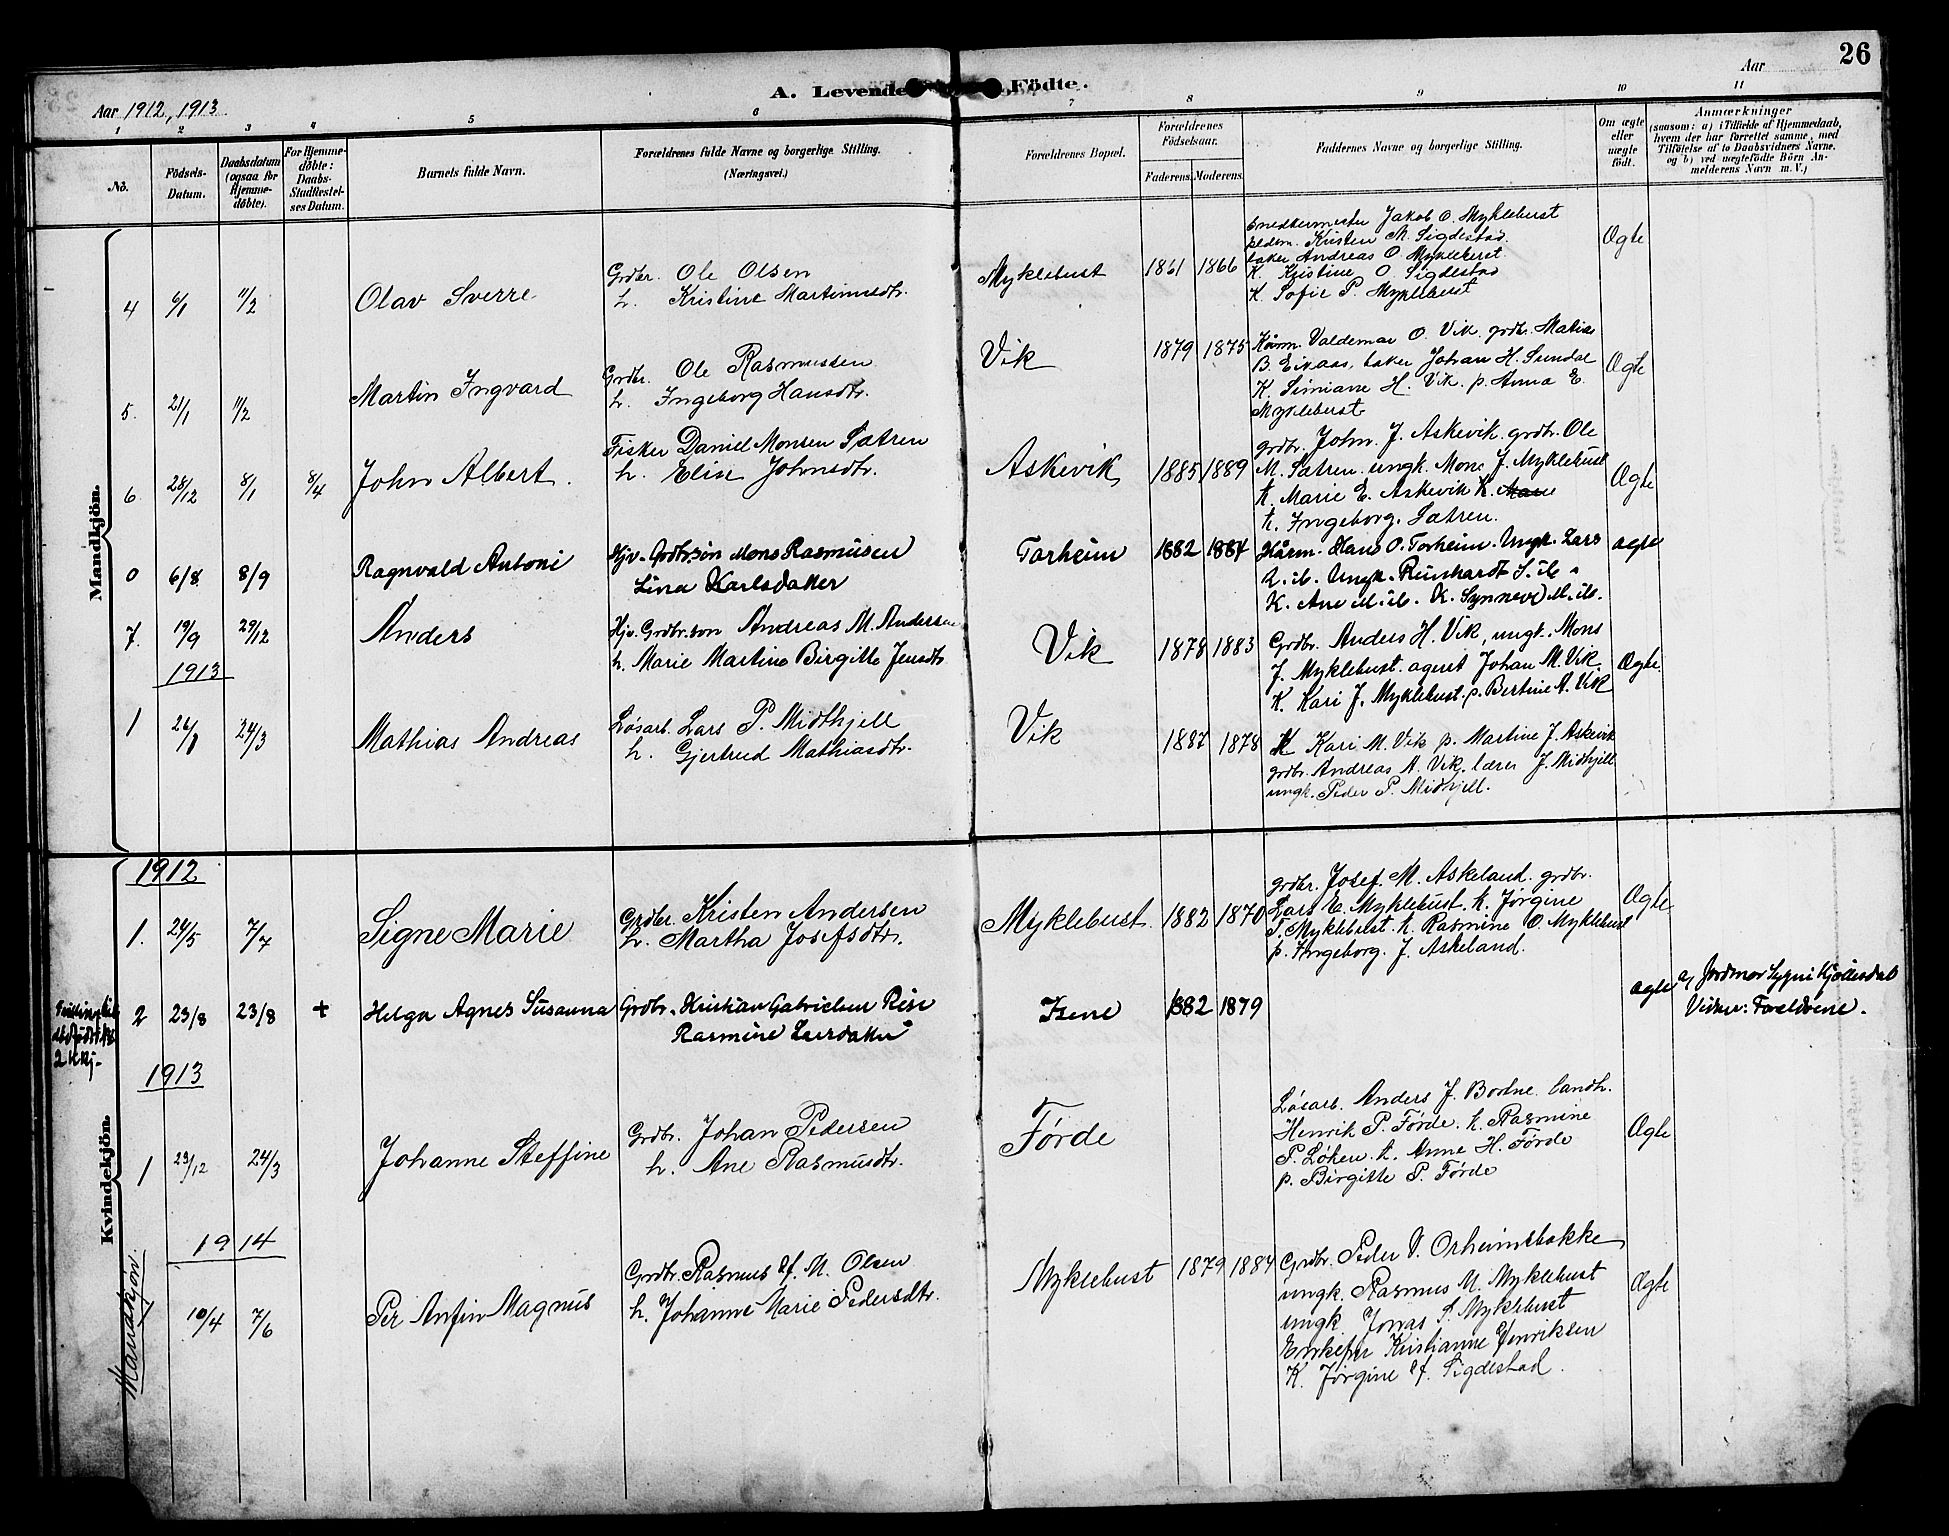 26
A. Levende Födte.
Aar 1912, 1913.
Aar
1 2 3 4 5 6 7 8 9 10 11
No.
Födsels-Datum.
Daabsdatum (ogsaa for Hjemme-döbte).
For Hjemme-döbte: Daabs-Stadfæstel-ses Datum.
Barnets fulde Navn.
Forældrenes fulde Navne og borgerlige Stilling.
(Næringsvei.)
Forældrenes Bopæl.
Forældrenes Födselsaar.
Faderens. Moderens.
Faddernes Navne og borgerlige Stilling.
Om ægte eller uægte födt.
Anmærkninger
(saasom: a) i Tilfælde af Hjemmedaab,
hvem der har forrettet samme, med
Tilföielse af to Daabsvidners Navne,
og b) ved uægtefödte Börn An-
melderens Navn m. V.)
Mandkjön.
4 6/1 11/2 Olav Sverre
Grdbr. Ole Olsen
h. Kristine Martinusdtr.
Myklebust 1861 1866
Snedkermester Jakob O. Myklebust
Kristen M. Sigdestad.
baker Andreas O. Myklebust
K. Kristine O. Sigdestad
K. Sofie P. Myklebust
Ægte
5. 21/1 11/2 Martin Ingvard
Grdbr. Ole Rasmussen
h. Ingeborg Hansdtr.
Vik 1879 1875
Kårm. Valdemar O. Vik. grdbr. Matias
B. Eikaas, baker Johan H. Sundal
K. Simiane H. Vik. p. Anna E.
Myklebust
Ægte
6. 28/12 8/1 8/4 John Albert.
Fisker Daniel Monsen Sætren
h. Elise Johnsdtr.
Askevik 1885 1889
grdbr. John J. Askevik. grdbr. Ole
M. Sætren. ungk. Mons J. Myklebust
k. Marie E. Askevik K. Marie
k. Ingeborg. Sætren.
Ægte
0 6/8 8/9 Ragnvald Antoni
Hjv. Grdbr.søn Mons Rasmusen
Lina Karlsdatter
Torheim 1882 1884
Kårm. Hans O. Torheim. Ungk. Lars
A. ib. Ungk. Reinhardt S. ib.
K. Ane M. ib. K. Synneve M. ib.
ægte
7. 19/9 29/12 Anders
Hjv. Grdbr.son Andreas M. Andersen
h. Marie Martine Birgitte Jensdtr
Vik 1878 1883
Grdbr. Anders H. Vik, ungk. Mons
J. Myklebust. agent Johan M. Vik
K. Kari J. Myklebust. p. Bertine A. Vik
Ægte
1913
1 26/1 24/3 Mathias Andreas
Løsarb. Lars P. Midthjell
h. Gjertrud Mathiasdtr.
Vik 1887 1878
K Kari M. Vik p. Martine J. Askevik
grdbr. Andreas A. Vik. lærer J. Midhjell
ungk. Peder P. Midhjell.
Kvindekjön.
1912
1. 24/5 7/7 Signe Marie
Grdbr. Kristen Andersen
h. Martha Josefsdtr.
Myklebust. 1882 1870
grdbr. Josef. M. Askeland. grdbr.
Lars E. Myklebust. k. Jørgine
T. Myklebust. k. Rasmine O. Myklebust
p. Ingeborg. J. Askeland.
Ægte
2 K.Kj.
2 23/8 23/8 + Helga Agnes Susanna
Grdbr. Kristian Gabrielsen Rise
Rasmine Larsdatter
Isene 1882 1879
ægte
a/ Jordmor Sygni Kjøllesdal
Vidner: Forældrene.
1913
1 23/12 24/3 Johanne Steffine
Grdbr. Johan Pedersen
h. Ane Rasmusdtr.
Førde
Løsarb. Anders J. Bortne. landh.
Henrik P. Førde. k. Rasmine
P. Løken. k. Anne H. Førde
p. Birgitte P. Førde
Ægte
1914
Mandkjön.
1 10/4 7/6 Per Anfin Magnus
Grdbr. Rasmus Hf. M. Olsen
h. Johanne Marie Pedersdtr.
Myklebust 1879 1884
Grdbr. Peder V. Orheimsbakke
ungk. Rasmus M. Myklebust
ungk Jonas S. Myklebust
Enkefru Kristianne Henriksen
K. Jørgine Hf. Sigdestad.
Ægte